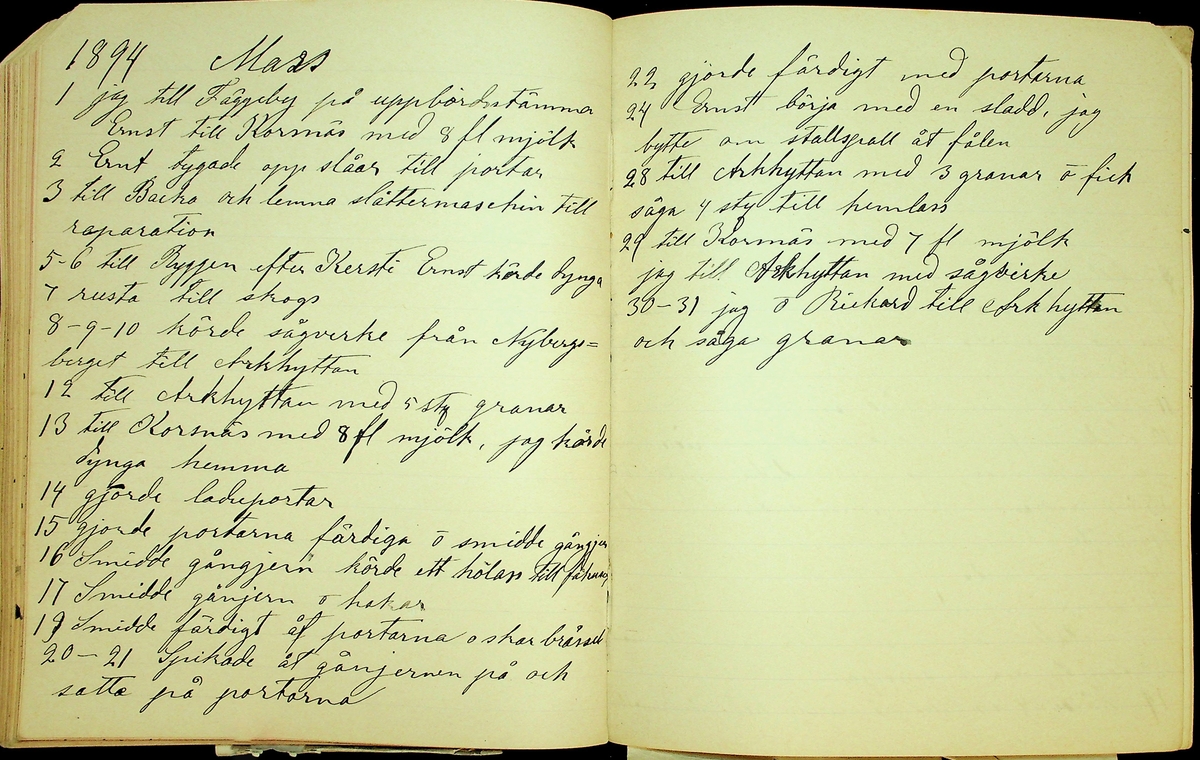 1894 Mars
1 jag till Fäggeby på uppbördsstämma
Ernst till Korsnäs med 8 fl mjölk
2 Ernt tygade opp slåar till portar
3 till Backa och lemna slåttermaschin till
raparation
5-6 till Byggen efter Kersti Ernst körde dynga
7 rusta till skogs
8-9-10 körde sågverke från Nybergs=
berget till Arkhyttan
12 till Arkhyttan med 5 sty granar
13 till Korsnäs med 8 fl mjölk, jag körde
dynga hemma
14 gjorde laduportar
15 gjorde portarna färdiga ö smidde gångjern
16 Smidde gångjern körde ett hölass till fähuset
17 Smidde gånjern ö hakar
19 Smidde färdigt åt portarna o skar brässel
20-21 Spikade åt gånjernen på och
satte på portarna
22 gjorde färdigt med portarna
24 Ernst börja med en sladd, jag
bytte om stallspall åt fålen
28 till Arkhyttan med 3 granar ö fick
såga 4 sty till hemlass
29 till Korsnäs med 7 fl mjölk
jag till Arkhyttan med sågvirke
30-31 jag ö Rickard till Arkhyttan
och såga granar